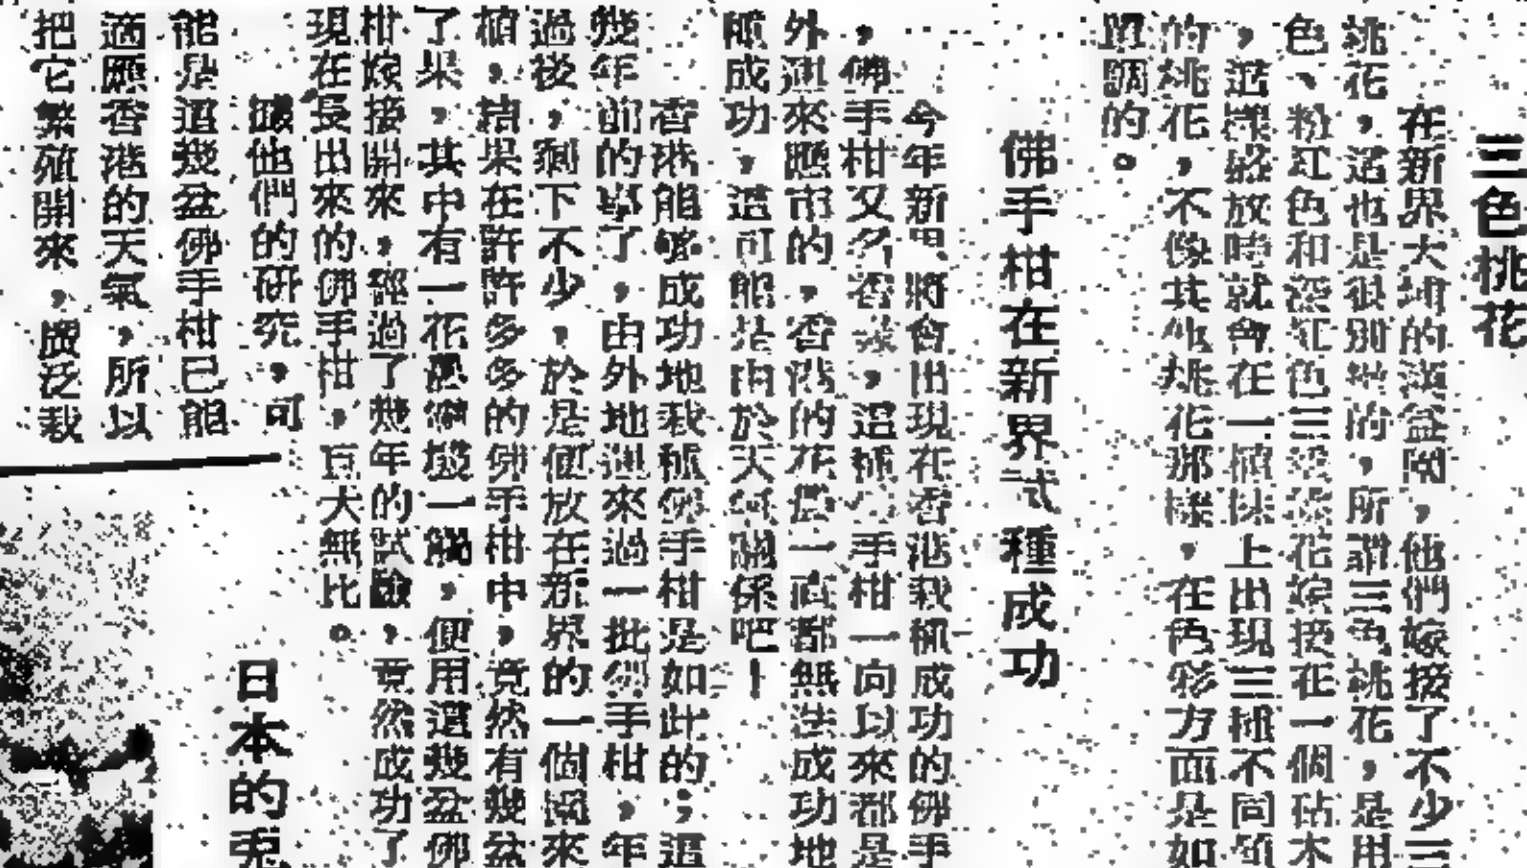 三色桃花
在新界大埔的漢盆園，他們嫁接了不少三
桃花，這也是很別緻的，所謂三色桃花，是用
色、粉紅色和深紅色三花嫁接在一個砧木
，這樣放時就會在一植株上出現三種不同顏
的桃花，不像其他桃花那樣，在色彩方面是如
單調的。
佛手柑在新界試種成功
今年新界將會出現在香港栽種成功的佛手
，佛手柑又名香，這種手柑一向以來都是
外運來應市的，香港的花農一直都無法成功地
成功，這可能是由於天氣關係吧！
香港能夠成功地栽種佛手柑是如此的；這
幾年前的事了，由外地運來過一批佛手柑，年
過後，剩下不少，於是便放在新界的一個溫來
植，結果在許許多多的佛手柑中，竟然有幾盆
了果，其中有一花一觸，便用這幾盆佛
柑嫁接開來，經過了幾年的試驗，竟然成功了
現在長出來的佛手柑，大無比。
據他們的研究，可
能是這幾盆佛手柑已能
適應香港的天氣，所以
把它繁殖開來，廣泛栽
日本的兎